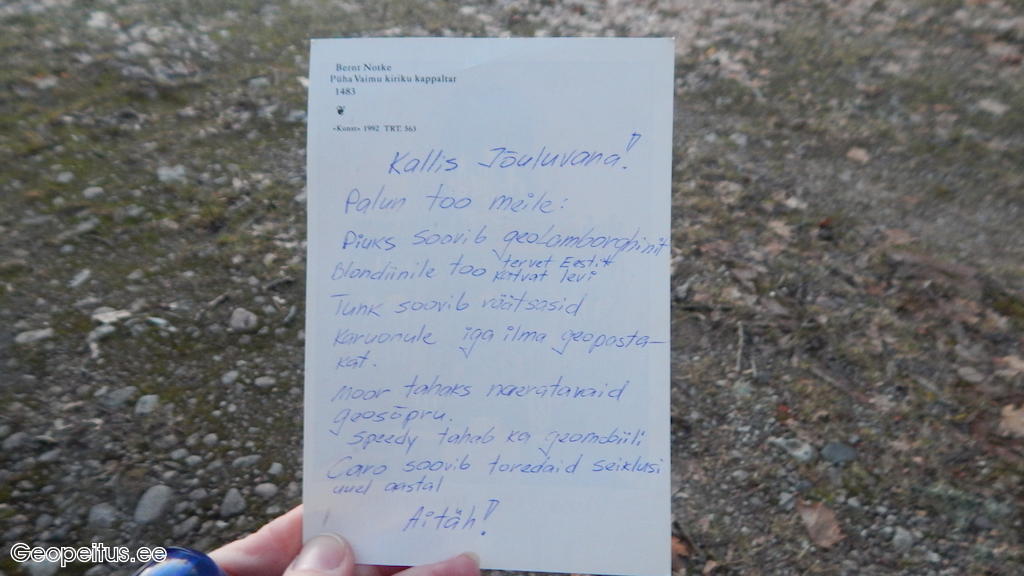 Bernt Notke
Püha Vaimu kiriku kappaltar
1483
«Kunst» 1992 TRT. 563
Kallis Jõuluvana!
Palun too meile:
Piuks soovib geoLamborghinit
Blondiinile too tervet Eestit
katvat levi
Tunk soovib väätsasid
Karvonule iga ilma geoposta-
kat.
Moor tahaks naeratavaid
geosõpru.
Speedy tahab ka geomobiili
Caro soovib toredaid seiklusi
uuel aastal
Aitäh!
Geopeitus.ee